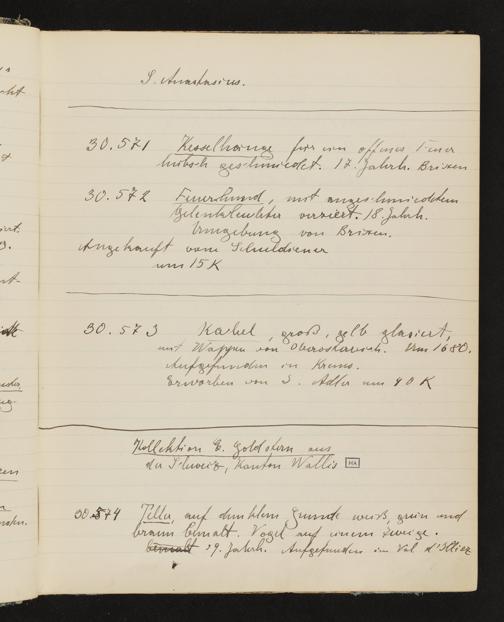 S. Anastasius.
30.571 Kesselhänge für ein offenes Feuer
hübsch geschmiedet. 17. Jahrh. Brixen
30.572 Feuerhund, mit angeschmiedetem
verziert. 18. Jahrh.
Umgebung von Brixen.
Angekauft vom Schuldiener
um 15 K
30.573 Kachel, groß, gelb glasiert,
mit Wappen von Oberösterreich. Um 1680.
Aufgefunden in Krems.
Erworben von S. Adler um 40 K
Kollektion E. Goldstern aus
der Schweiz, Kanton Wallis
30.574 Teller, auf dunklem Grunde weiß, grün und
braun bemalt. Vogel auf einem Zweige.
19. Jahrh. Aufgefunden im Val d'Illiez